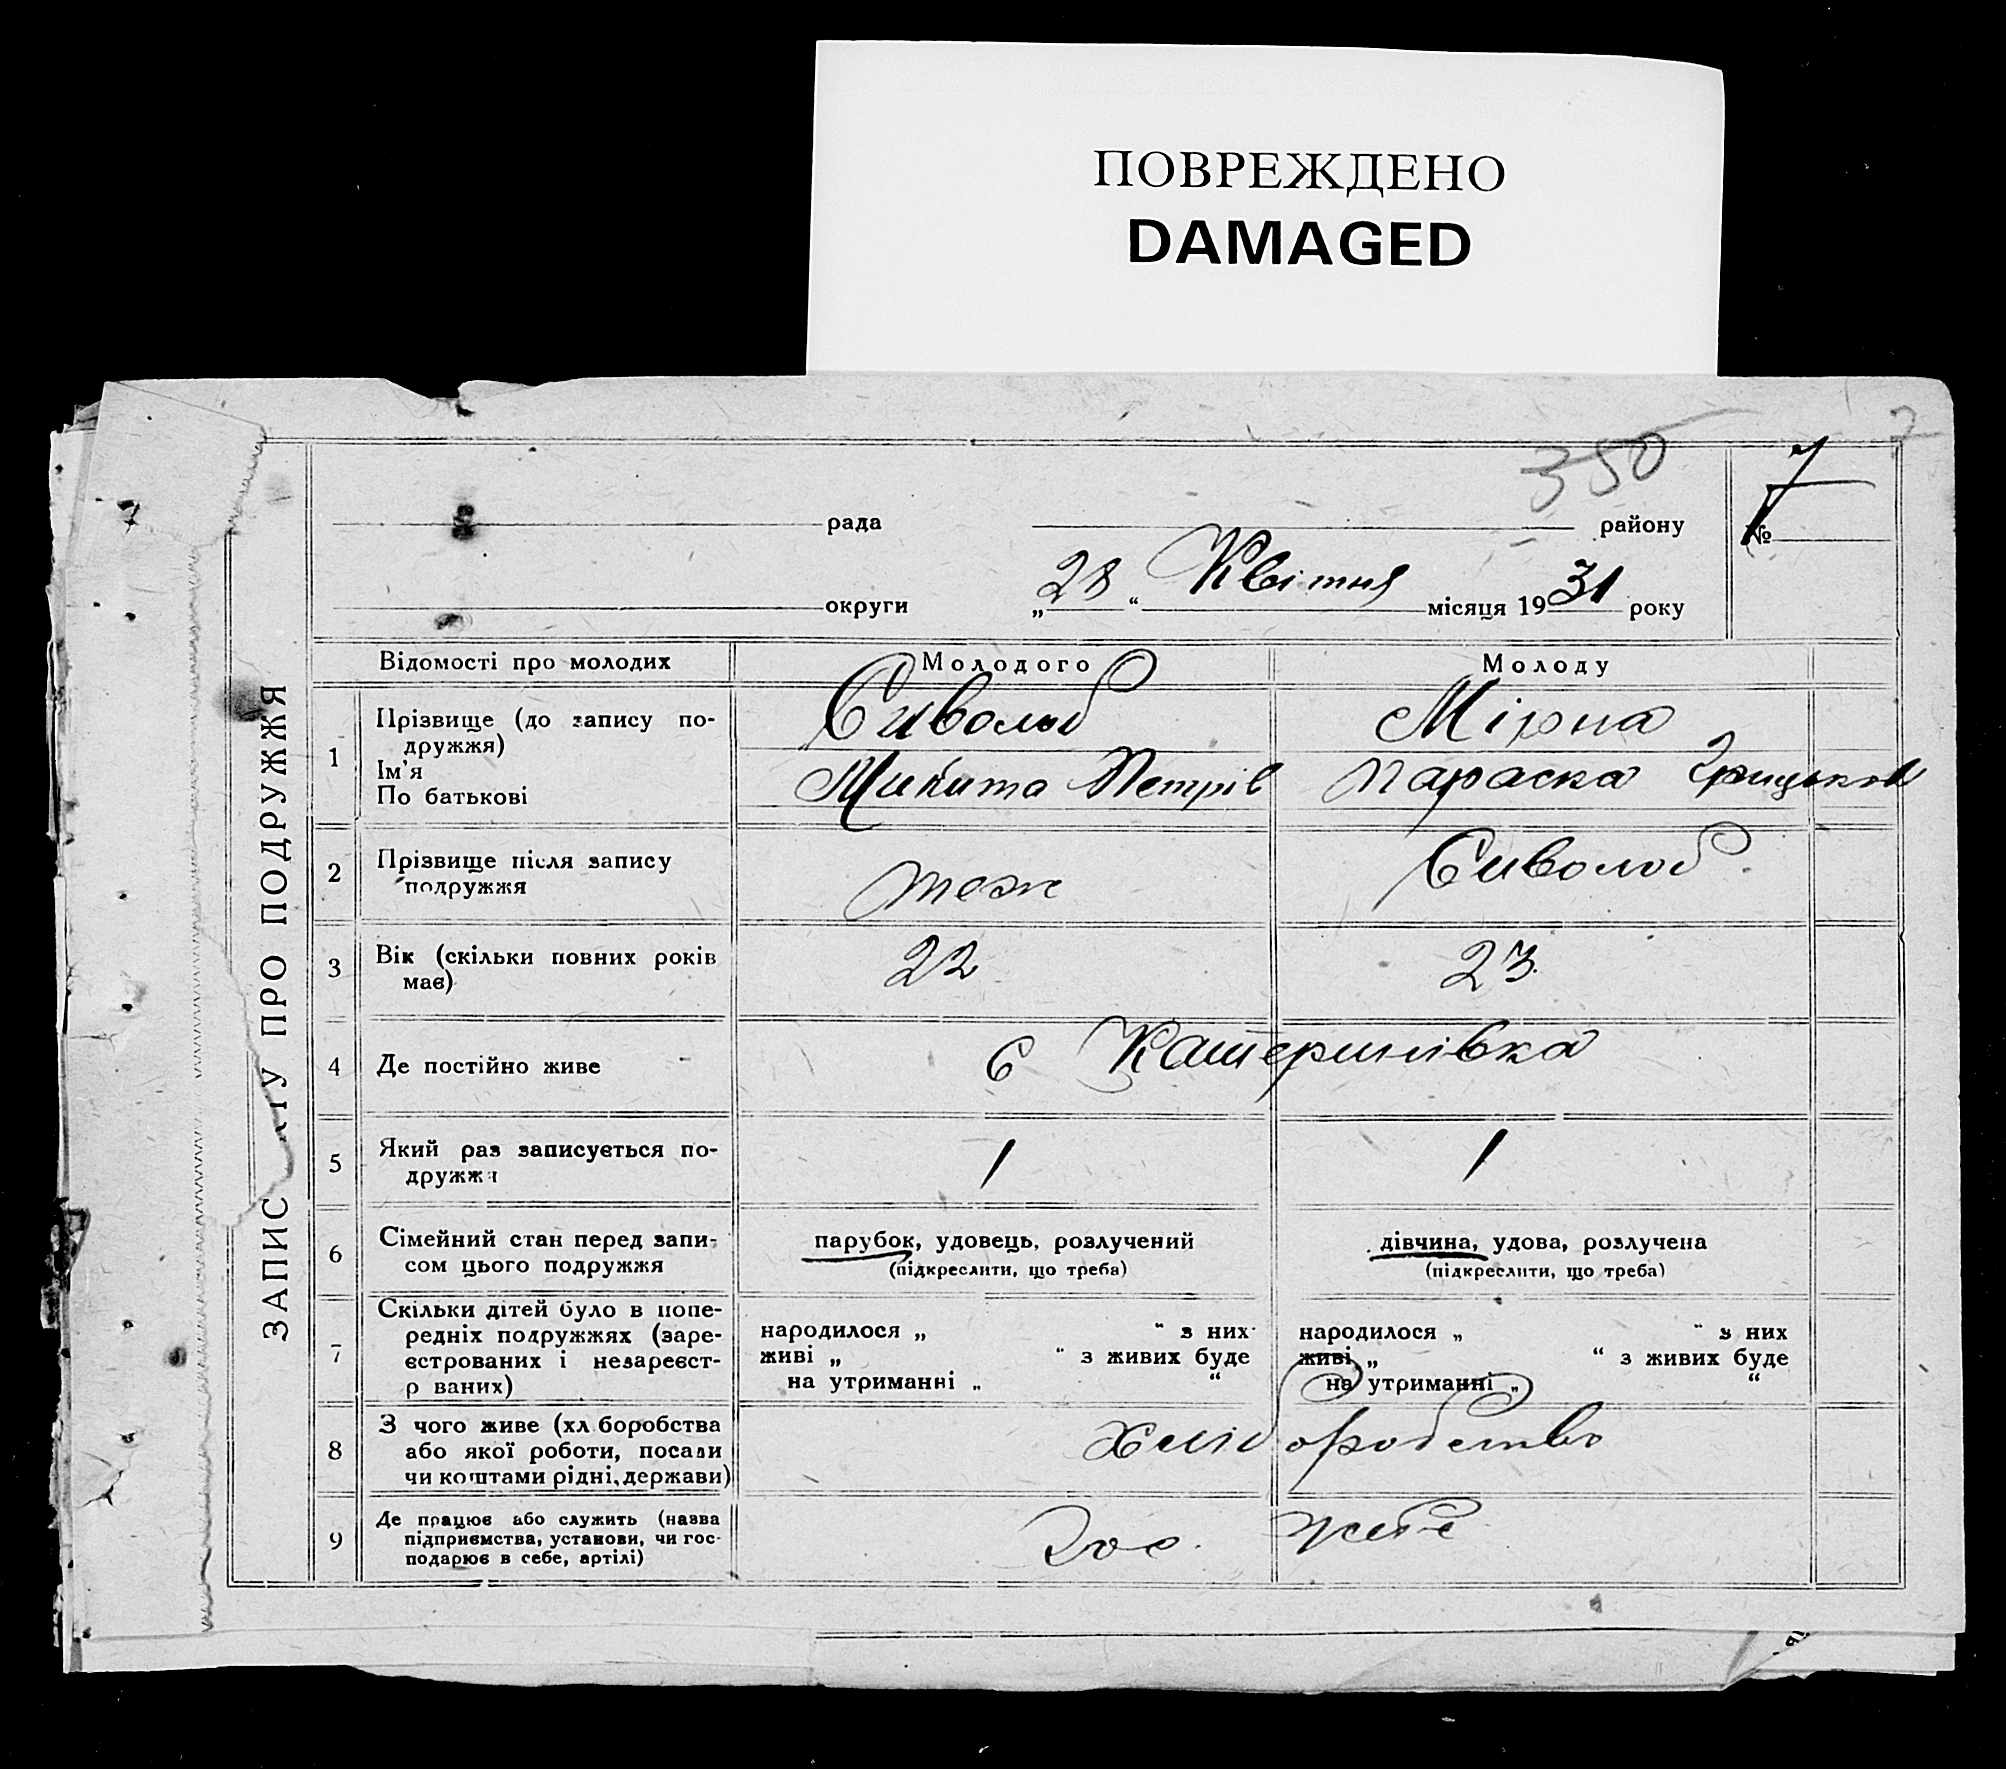 ПОВРЕЖДЕНО
DAMAGED
350
7
рада
району
№
округи
„ 28 “ Квітня місяця 1931 року
ЗАПИС АКТУ ПРО ПОДРУЖЖЯ
Відомості про молодих
Молодого
Молоду
1
Прізвище (до запису по-
дружжя)
Ім'я
По батькові
Сиволоб
Микита Петрів
Мірна
Параска Грицьков
2
Прізвище після запису
подружжя
тож
Сиволоб
3
Вік (скільки повних років
має)
22
23
4
Де постійно живе
с Катеринівка
5
Який раз записується по-
дружжя
1
1
6
Сімейний стан перед запи-
сом цього подружжя
парубок, удовець, розлучений
(підкреслити, що треба)
дівчина, удова, розлучена
(підкреслити, що треба)
7
Скільки дітей було в попе-
редніх подружжях (заре-
єстрованих і незареєст-
р ваних)
народилося „ “ з них
живі „ “ з живих буде
на утриманні „ “
народилося „ “ з них
живі „ “ з живих буде
на утриманні „ “
8
З чого живе (хл боробства
або якої роботи, посади
чи коштами рідні, держави)
хліборобство
9
Де працює або служить (назва
підприємства, установи, чи гос-
подарює в себе, артілі)